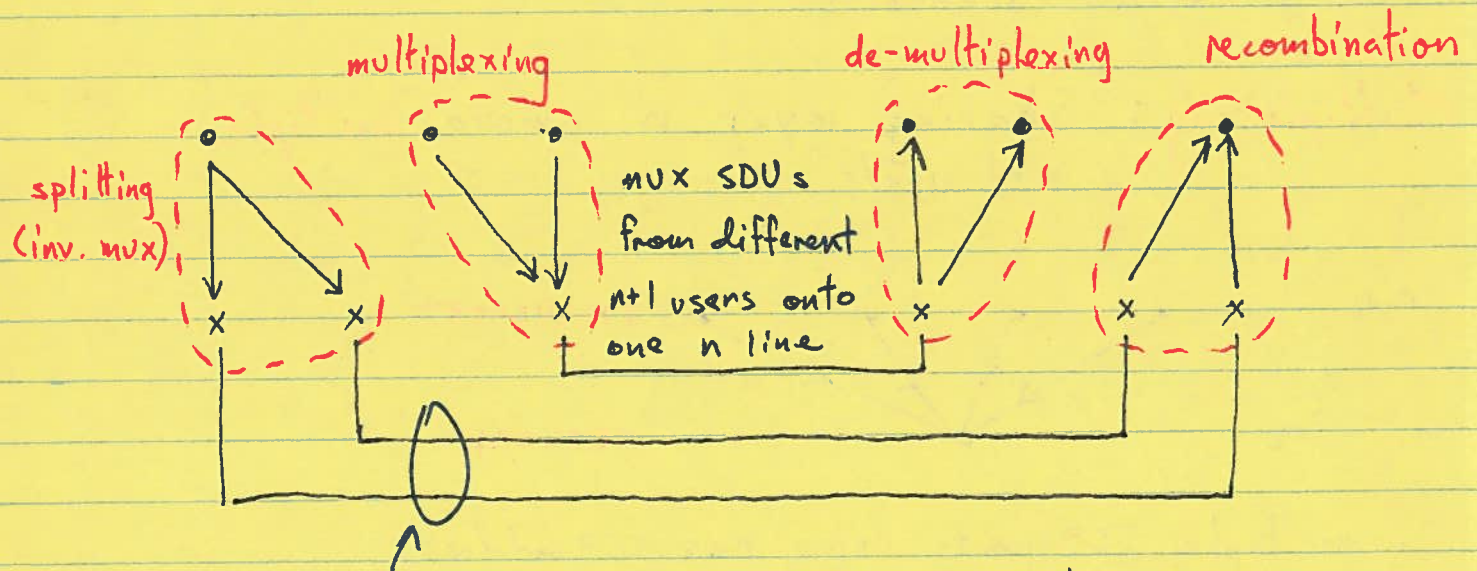 multiplexing
de-multiplexing
recombination
splitting
(inv. mux)
mux SDUs
from different
n+1 users onto
one n line
x x x x x x